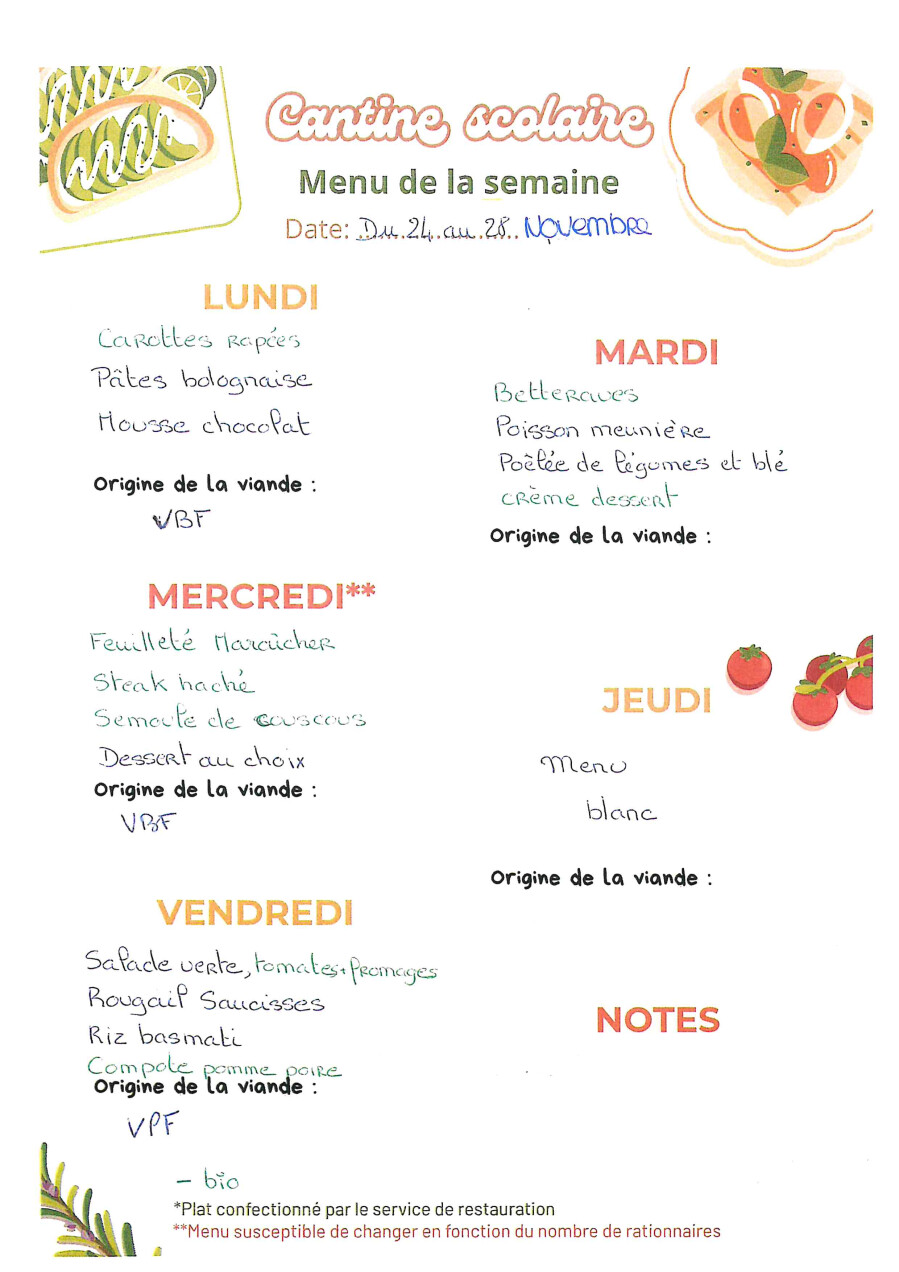 Cantine scolaire
Menu de la semaine
Date: Du 24 au 28 Novembre
LUNDI
Carottes Rapées
Pâtes bolognaise
Mousse chocolat
Origine de la viande :
VBF
MARDI
Betteraves
Poisson meunière
Poêlée de légumes et blé
crème dessert
Origine de la viande :
MERCREDI**
Feuilleté Maraîcher
Steak haché
Semoule de couscous
Dessert au choix
Origine de la viande :
VBF
JEUDI
Menu
blanc
Origine de la viande :
VENDREDI
Salade verte, tomates+fromages
Rougail Saucisses
Riz basmati
Compote pomme poire
Origine de la viande :
VPF
NOTES
- bio
*Plat confectionné par le service de restauration
**Menu susceptible de changer en fonction du nombre de rationnaires